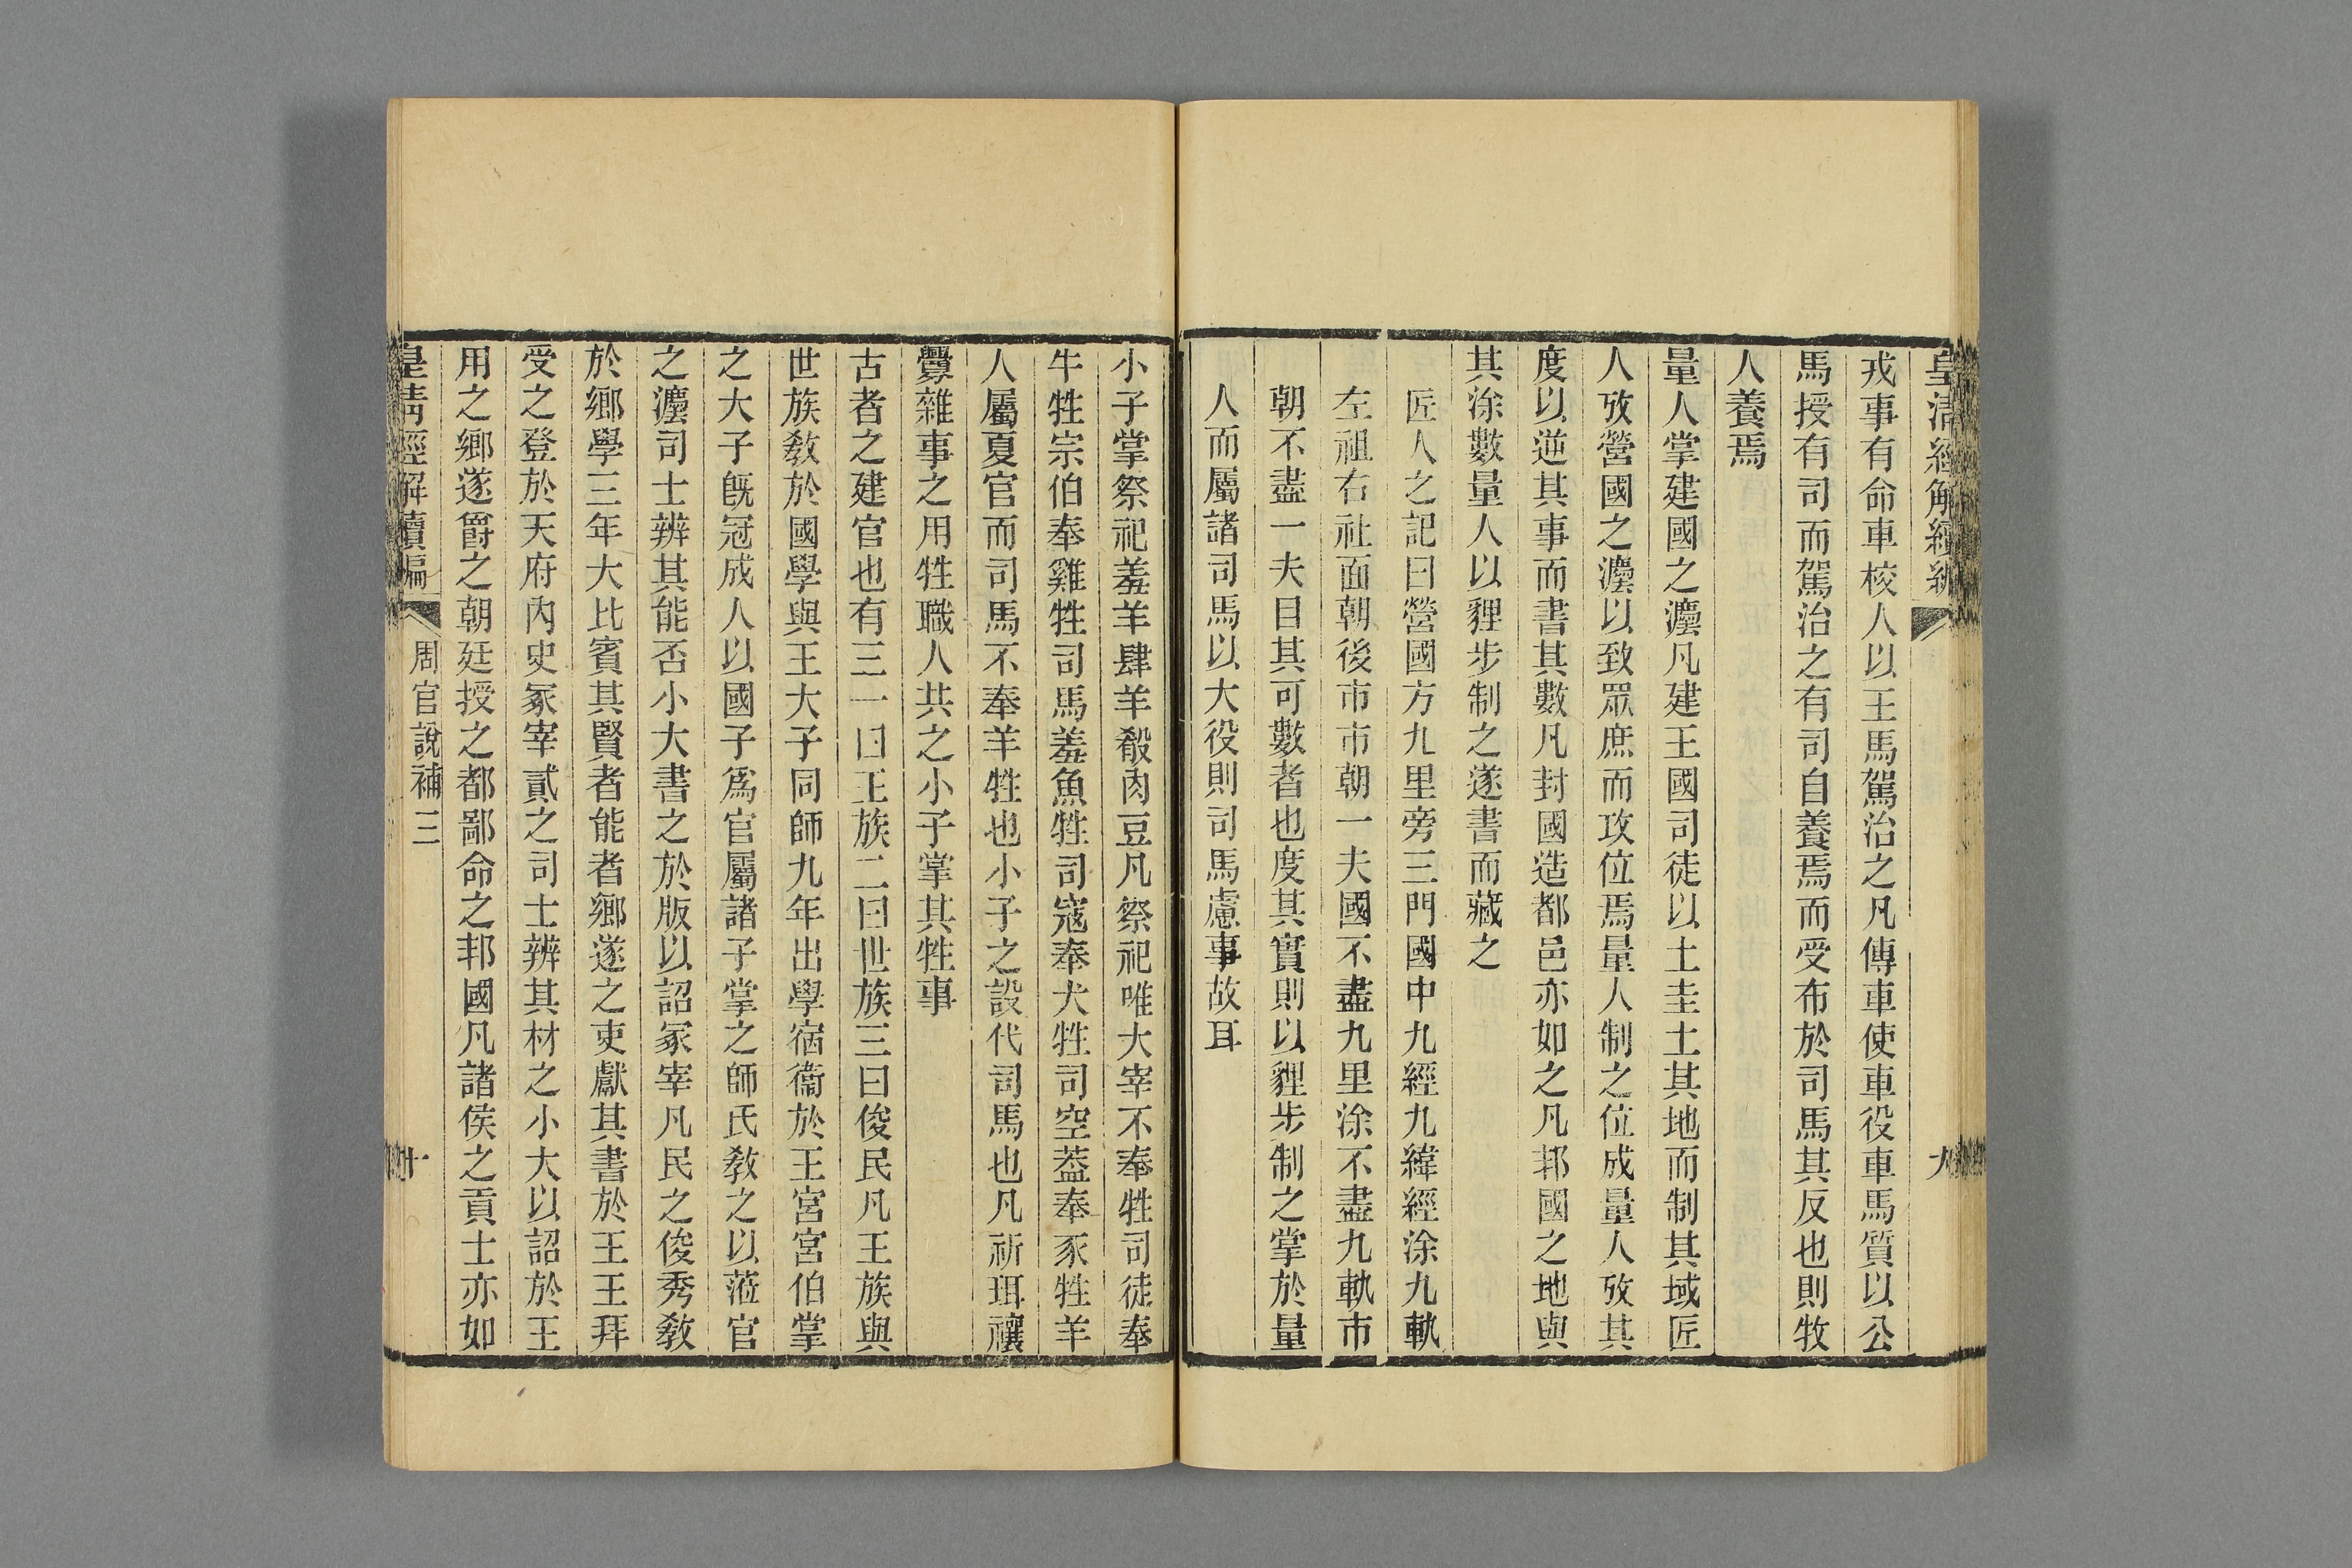 皇清經解續編
九
戎事有命車校人以王馬駕治之凡傳車使車役車馬質以公
馬授有司而駕治之有司自養焉而受布於司馬其反也則牧
人養焉
量人掌建國之灋凡建王國司徒以土圭土其地而制其域匠
人攷營國之灋以致眾庶而攻位焉量人制之位成量人攷其
度以逆其事而書其數凡封國造都邑亦如之凡邦國之地與
其涂數量人以貍步制之遂書而藏之
匠人之記曰營國方九里旁三門國中九經九緯經涂九軌
左祖右社面朝後市市朝一夫國不盡九里涂不盡九軌市
朝不盡一夫目其可數者也度其實則以貍步制之掌於量
人而屬諸司馬以大役則司馬慮事故耳
小子掌祭祀羞羊肆羊殽肉豆凡祭祀唯大宰不奉牲司徒奉
牛牲宗伯奉雞牲司馬羞魚牲司寇奉犬牲司空葢奉豕牲羊
人屬夏官而司馬不奉羊牲也小子之設代司馬也凡祈珥禳
釁雜事之用牲職人共之小子掌其牲事
古者之建官也有三一曰王族二曰世族三曰俊民凡王族與
世族敎於國學與王大子同師九年出學宿衞於王宮宮伯掌
之大子旣冠成人以國子爲官屬諸子掌之師氏敎之以蒞官
之灋司士辨其能否小大書之於版以詔冢宰凡民之俊秀敎
於鄉學三年大比賓其賢者能者鄉遂之吏獻其書於王王拜
受之登於天府內史冢宰貳之司士辨其材之小大以詔於王
用之鄉遂爵之朝廷授之都鄙命之邦國凡諸侯之貢士亦如
皇清經解續編
周官說補三
十